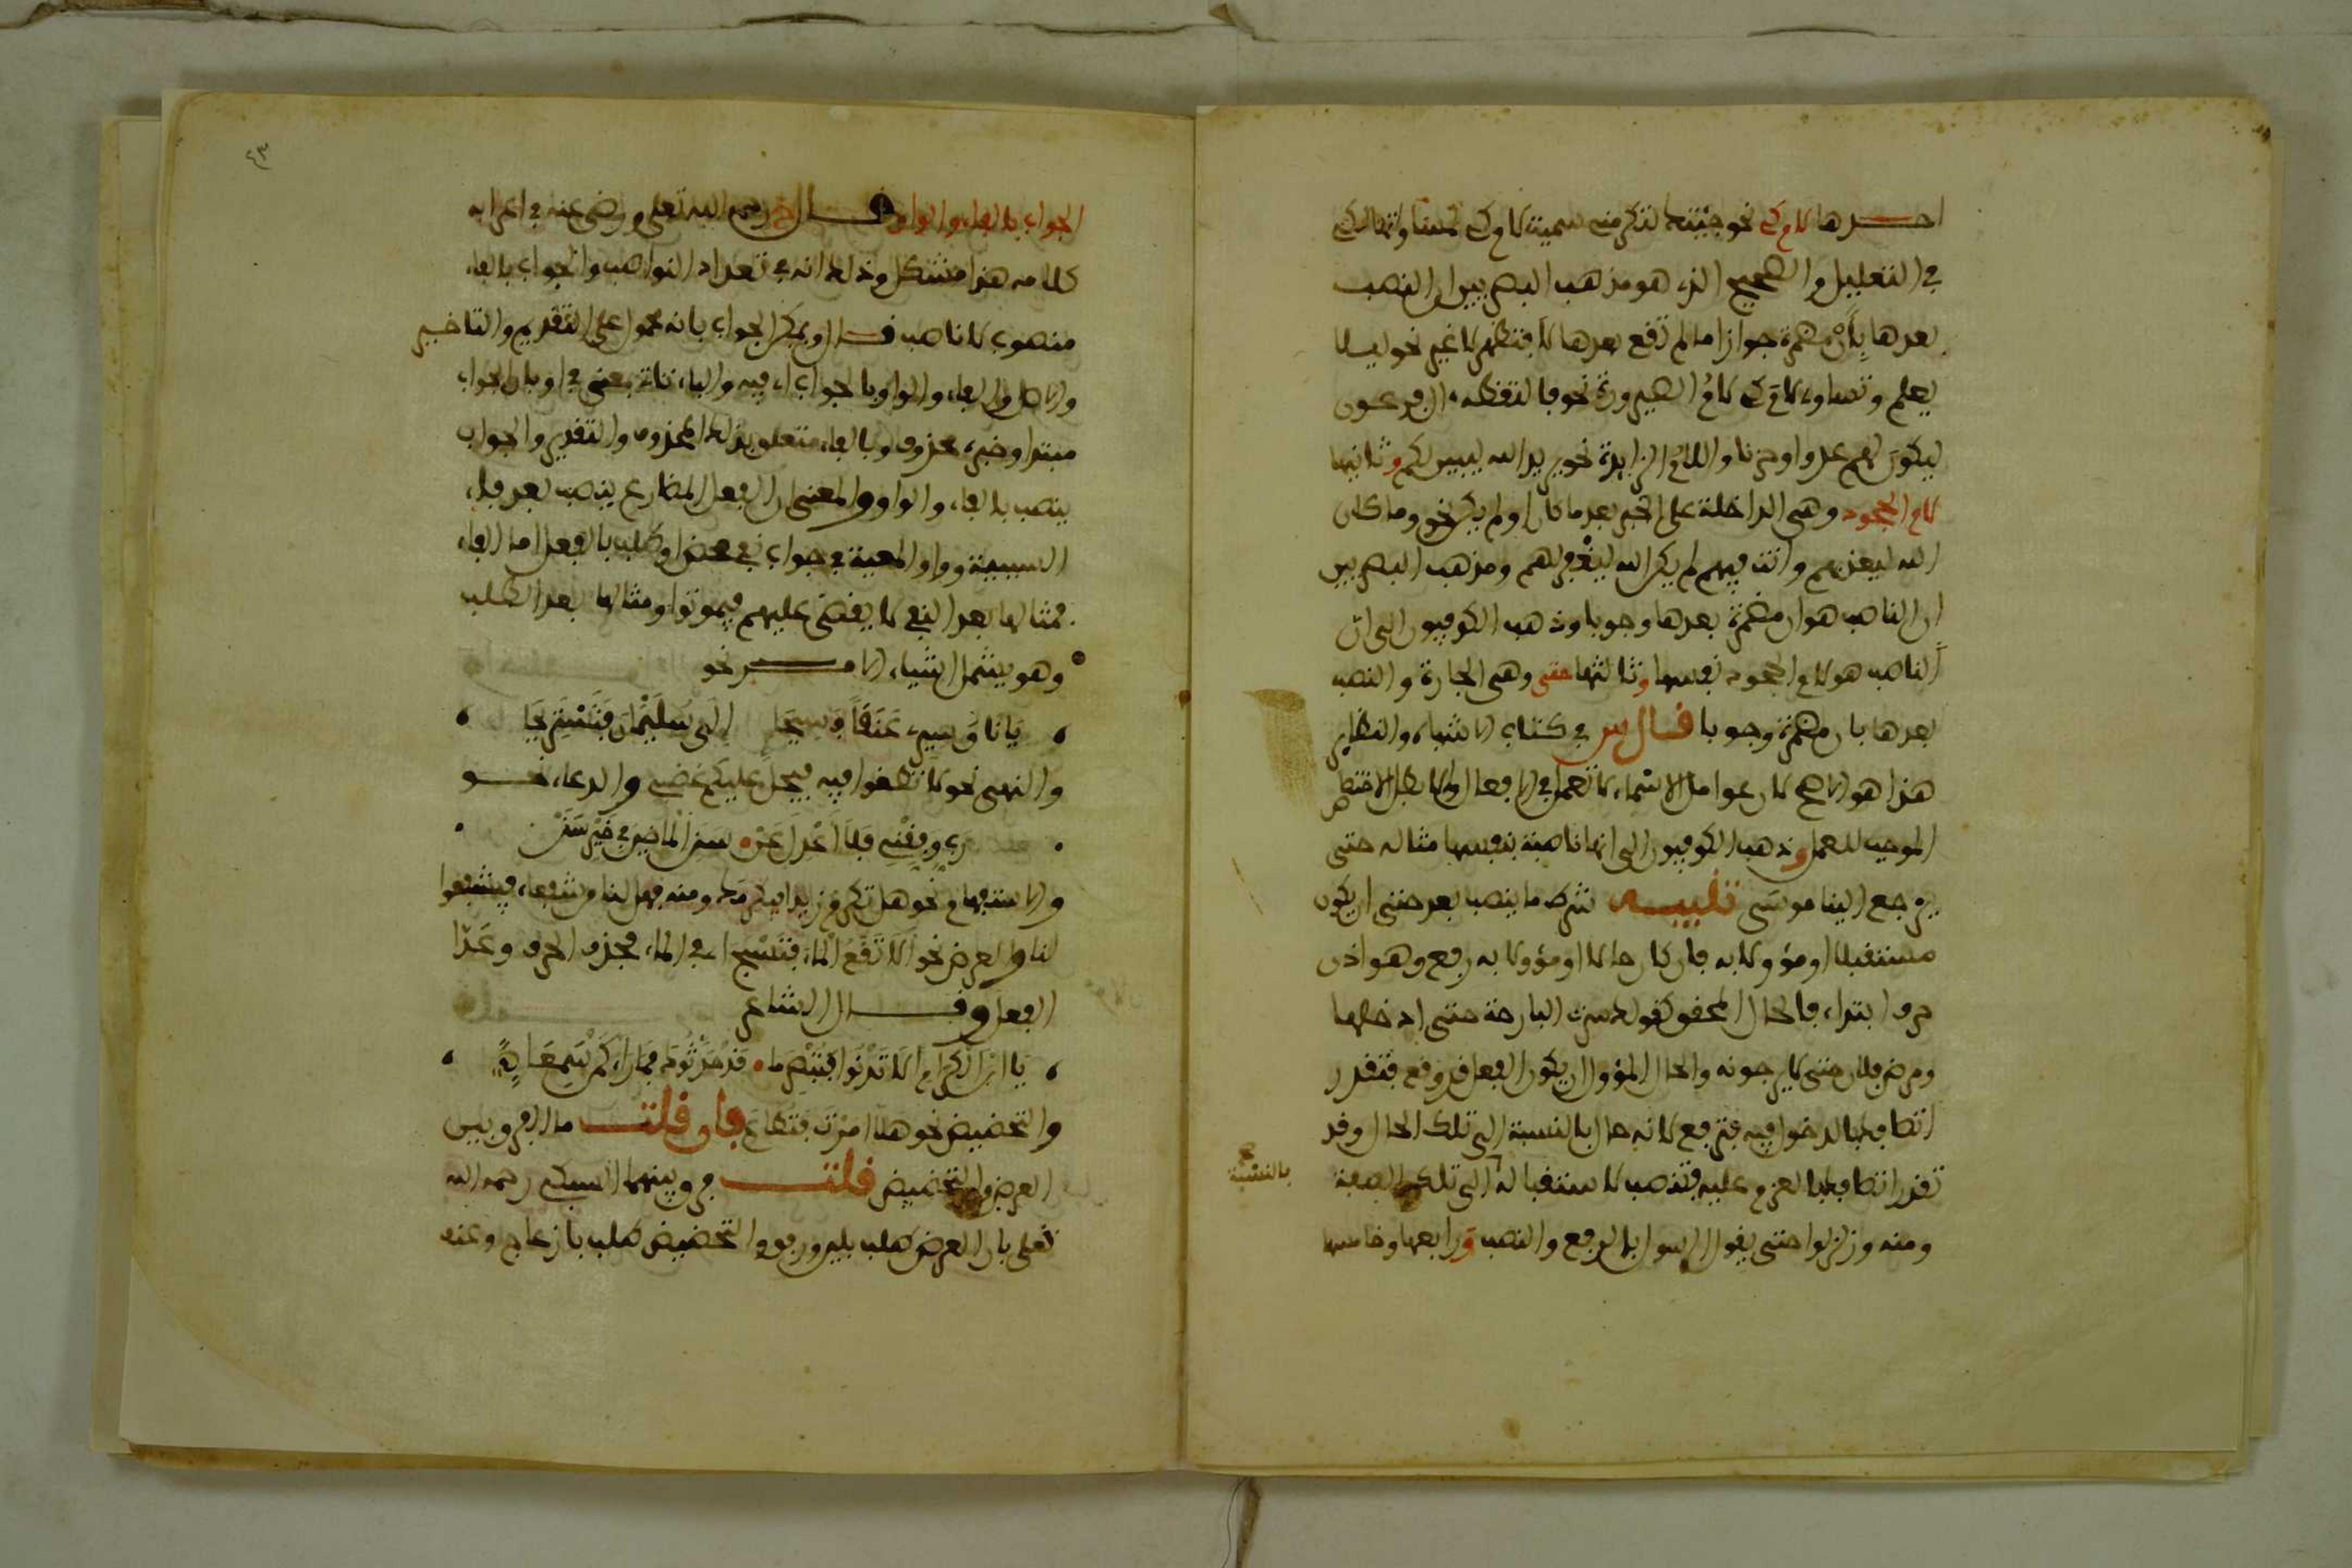 احدها لام كي نحو جئتك لتكرمني سميت لام كي لمساواتها لكي
في التعليل والصحيح الذي هو مذهب البصريين ان النصب
بعدها بأن مضمرة جوازا ما لم تقع بعدها لا فتظهر لا غير نحو ليلا
يعلم وتساوي لام كي لام الصيرورة نحو فالتقطه ال فرعون
ليكون لهم عدوا وحزنا واللام الزايدة نحو يريد الله ليبين لكم وثانيها
لام الجحود وهي الداخلة على الخبر بعد ما كان او لم يكن نحو وما كان
الله ليعذبهم وانت فيهم لم يكن الله ليغفر لهم ومذهب البصريين
ان الناصب هو ان مضمرة بعدها وجوبا وذهب الكوفيون الى ان
الناصب هو لام الجحود نفسها وثالثها حتى وهي الجارة والنصب
بعدها بان مضمرة وجوبا قال س في كتاب الاشباه والنظاير
هذا هو الاصح لان عوامل الاسماء لا تعمل في الافعال والا بطل الاختصاص
الموجب للعمل وذهب الكوفيون الى انها ناصبة بنفسها مثاله حتى
يرجع الينا موسى تنبيه شرط ما ينصب بعد حتى ان يكون
مستقبلا او مؤولا به فان كان حالا او مؤولا به رفع وهو اذن
حرف ابتداء فالحال المحقق كقولك سرت البارحة حتى ادخلها
ومرض فلان حتى لا يرجونه والحال المؤول ان يكون الفعل قد وقع فتقدر
اتصافه بالدخول فيه فترفع لانه حال بالنسبة الى تلك الحال وقد
تقدر اتصافه بالعزم عليه فتنصب لاستقباله الى تلك الصفة
بالنسبة صح
ومنه وزلزلوا حتى يقول الرسول بالرفع والنصب ورابعها وخامسها
٤٣
الجواب بالفاء والواو قال رحمه الله تعلى ورضي عنه في اعرابه
كلامه هذا مشكل وذلك انه في تعداد النواصب والجواب بالفاء
منصوب لا ناصب قال ويمكن الجواب بانه محمول على التقديم والتاخير
والاصل والفاء والواو بالجواب اي فيه والباء تاتي بمعنى في او بان الجواب
مبتدا وخبره محذوف وبالفاء متعلق بذلك المحذوف والتقدير والجواب
ينصب بالفاء والواو والمعنى ان الفعل المضارع ينصب بعد فاء
السببية وواو المعية في جواب نفي محض او طلب بالفعل اما الفاء
فمثالها بعد النفي لا يقضى عليهم فيموتوا ومثالها بعد الطلب
وهو يشمل اشياء الامر نحو
يا ناق سيري عنقا فسيحا الى سليمان فنستريحا
والنهي نحو لا تطغوا فيه فيحل عليكم غضبي والدعاء نحو
رب وفقني فلا اعدل عن سنن الماضين في خير سنن
والاستفهام نحو هل تكرم زيدا فيكرمك ومنه فهل لنا من شفعاء فيشفعوا
لنا والعرض نحو الا تقع الماء فتسبح اي في الماء فحذف الحرف وعدا
الفعل وقال الشاعر
يا ابن الكرام الا تدنو فتبصر ما قد حدثوك فما راء كمن سمعا
والتحضيض نحو هلا امرت فتطاع فان قلت ما الفرق بين
العرض والتحضيض قلت فرق بينهما السبكي رحمه الله
تعلى بان العرض طلب بلين ورفق والتحضيض طلب بازعاج وعنف